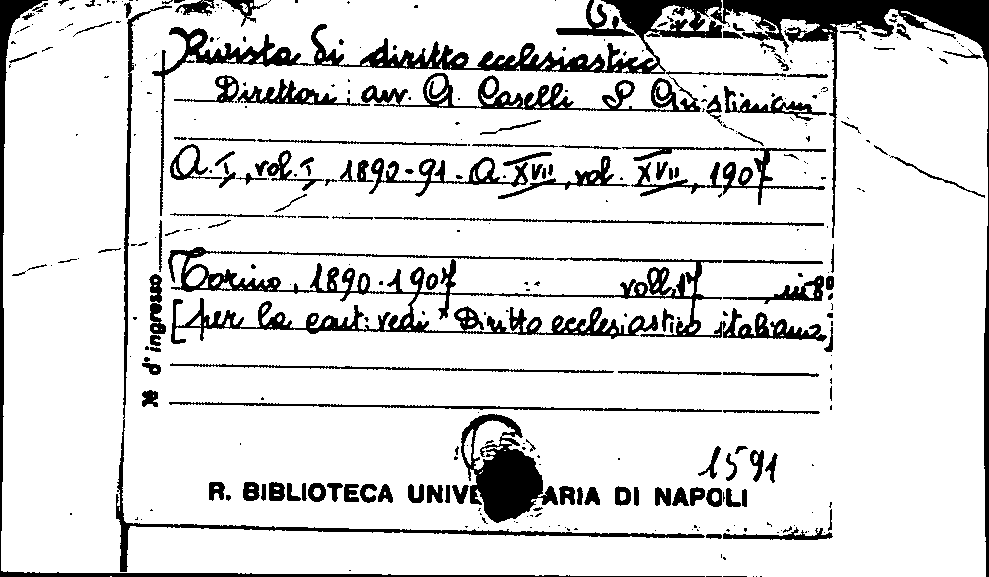 Rivista di diritto ecclesiastico
Direttori: avv. G. Caselli S. Giustiniani
A. I, vol. I, 1890-91 - A. XVII, vol. XVII, 1907
Torino, 1890-1907 voll. 17 in 8º
[per la cont: vedi "Diritto ecclesiastico italiano]
№ d'ingresso
1591
R. BIBLIOTECA UNIVE ARIA DI NAPOLI